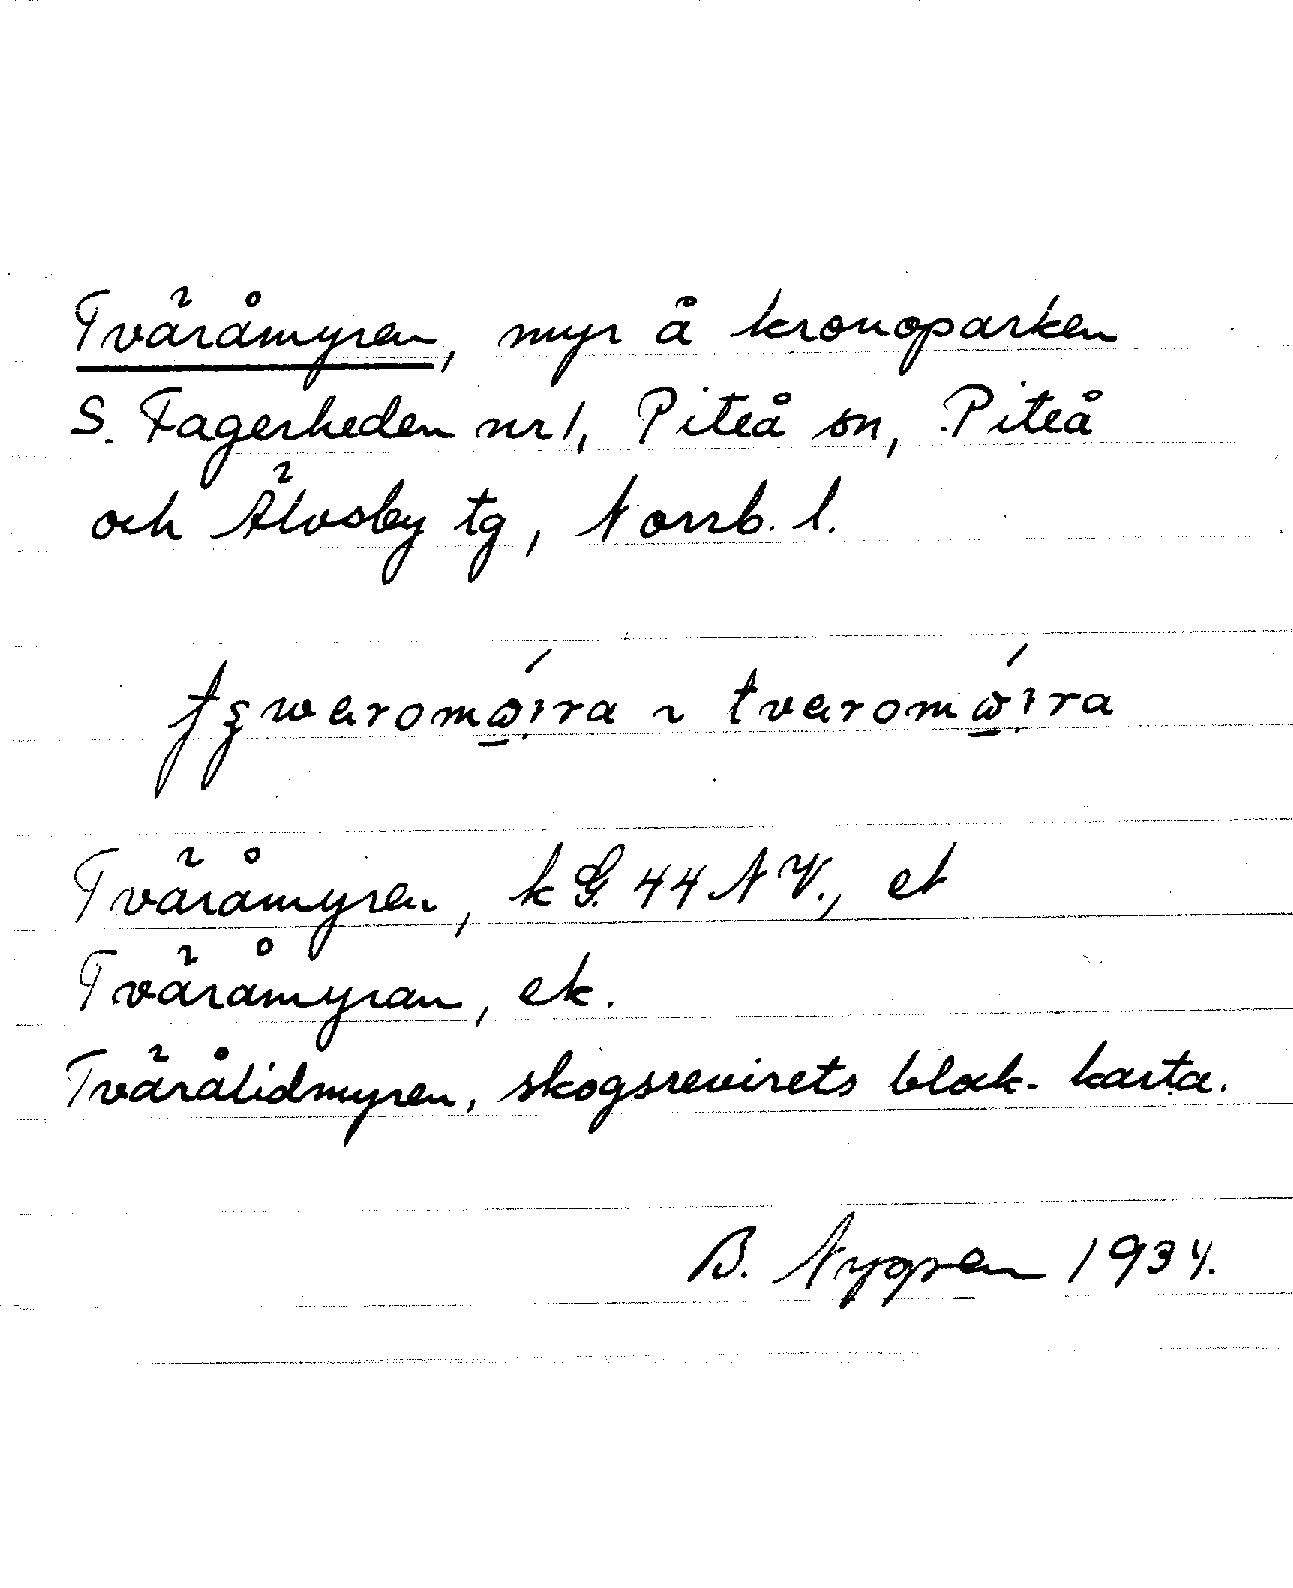 Tväråmyren, myr å kronoparken
S. Fagerheden nr 1, Piteå sn, Piteå
och Älvsby tg, Norrb. l.
Tväråmyren, k G. 44 N V., el
Tväråmyran, ek.
Tvärålidmyren, skogsrevirets block-karta.
B. Nygren 1934.